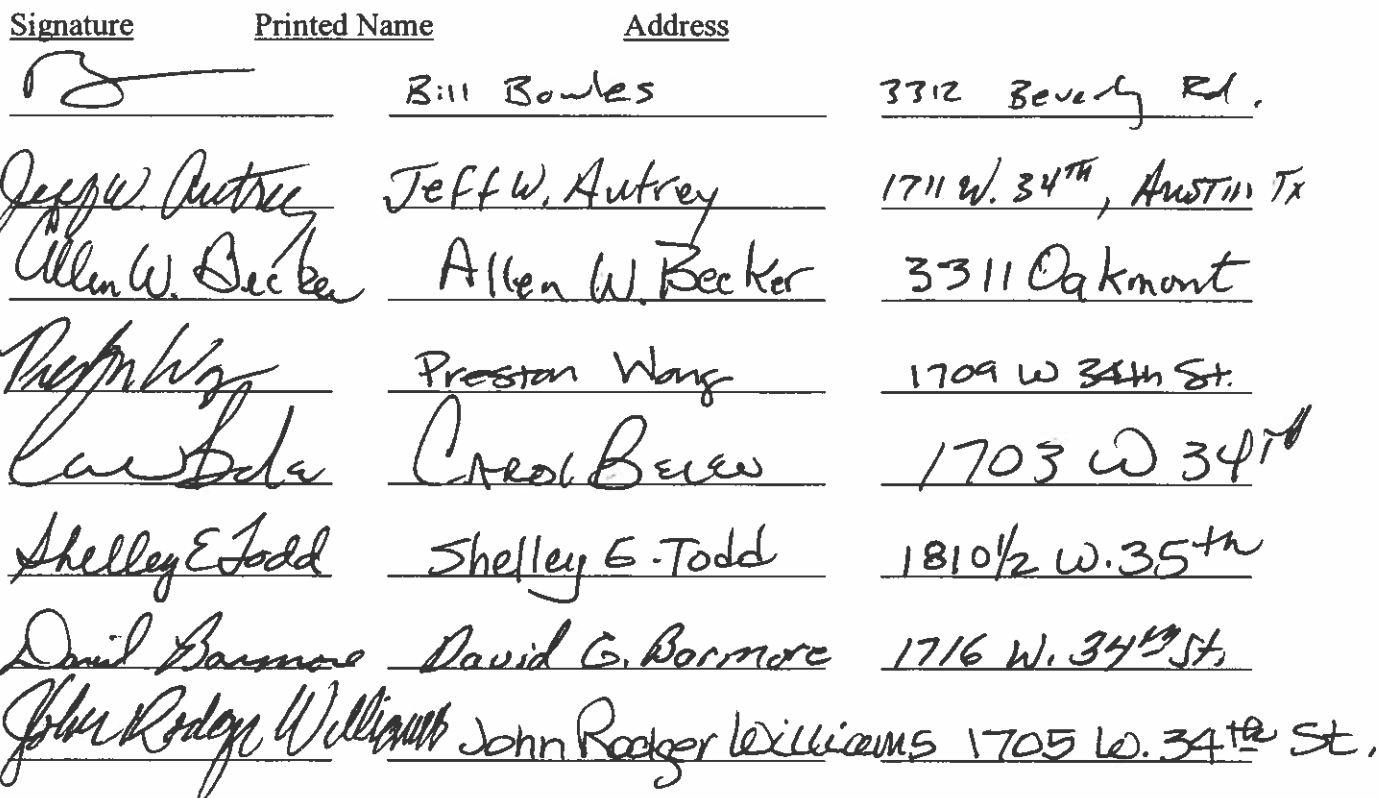 Signature Printed Name Address
Bill Bowles 3312 Beverly Rd.
Jeff W. Autrey Jeff W. Autrey 1711 W. 34TH, AUSTIN TX
Allen W. Becker Allen W. Becker 3311 Oakmont
Preston Wong Preston Wong 1709 W 34th St.
CAROL BELEW 1703 W 34TH
Shelley E Todd Shelley E. Todd 1810 1/2 W. 35th
David Barmore David G. Barmore 1716 W. 34th St.
John Rodger Williams John Rodger Williams 1705 W. 34th St.